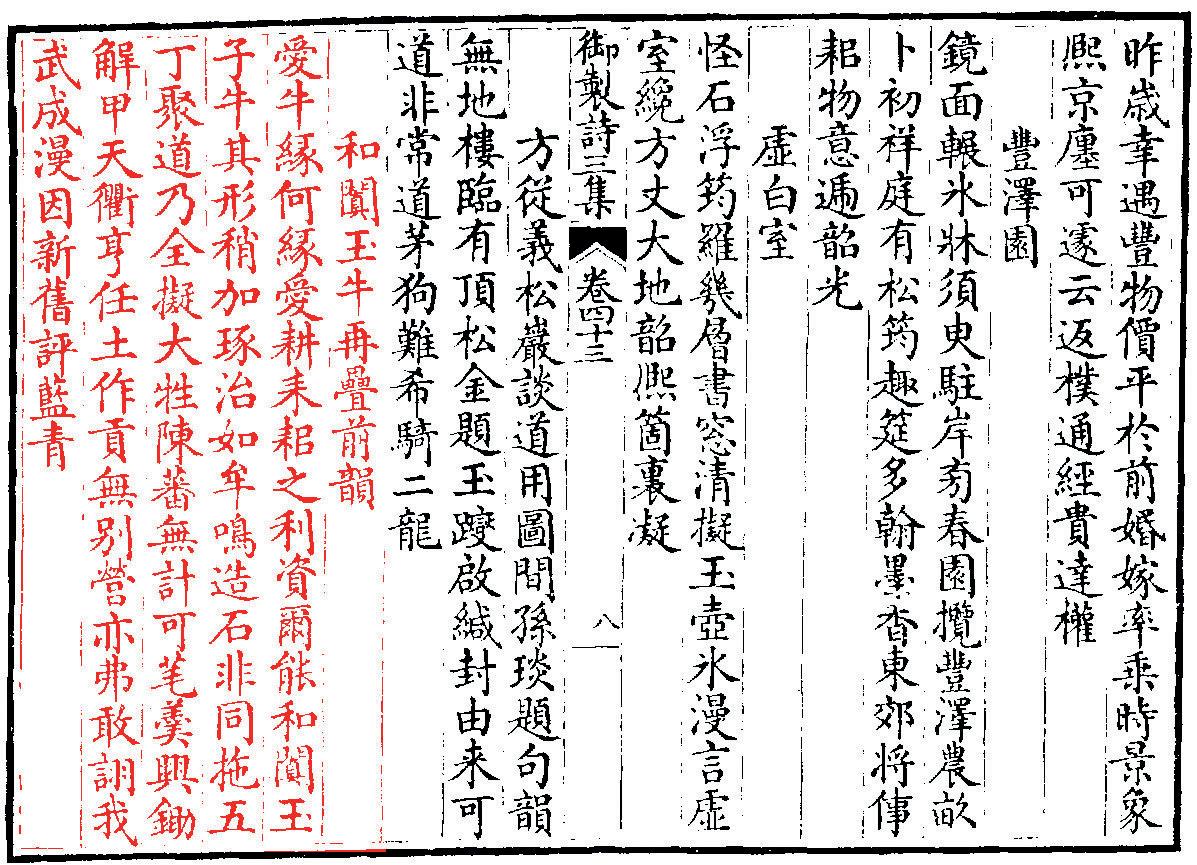 昨歲幸遇豐物價平於前婚嫁率乗時景象
熈京廛可遂云返樸通經貴達權
豐澤園
鏡面輾氷牀須臾駐岸旁春園攬豐澤農畝
卜初祥庭有松筠趣筵多翰墨香東郊将倳
耜物意遍韶光
虛白室
怪石浮筠羅㡬層書窓清擬玉壺氷漫言虛
室纔方丈大地韶熈箇裏凝
御製詩三集 卷四十三 八
方從義松巖談道用圖間孫琰題句韻
無地樓臨有頂松金題玉躞啟緘封由来可
道非常道茅狗難希騎二龍
和闐玉牛再疊前韻
愛牛縁何縁愛耕耒耜之利資爾能和闐玉
子牛其形稍加琢治如牟鳴造石非同拖五
丁聚道乃全擬大牲陳蕃無計可芼羮興鋤
解甲天衢亨任土作貢無别營亦弗敢詡我
武成漫因新舊評藍青